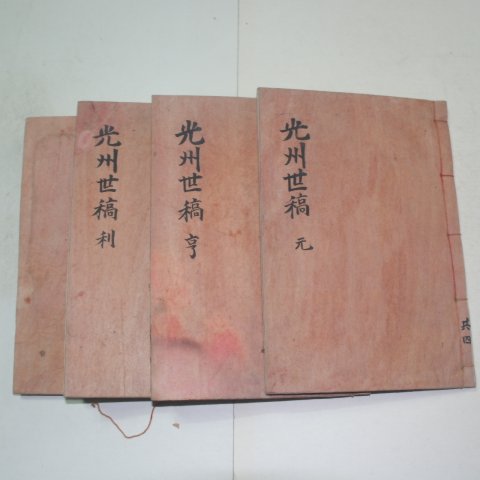 光州世稿 元
共四
光州世稿 亨
光州世稿 利